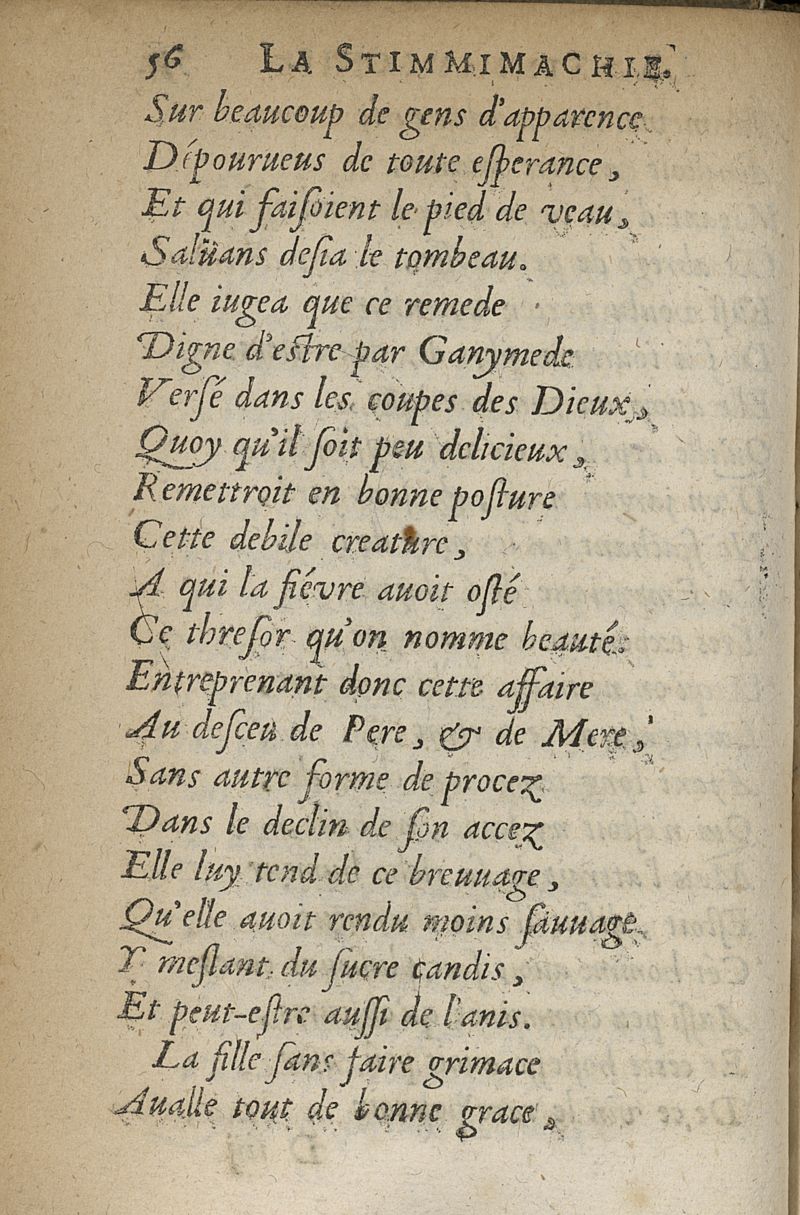 56 LA STIMMIMACHIE.
Sur beaucoup de gens d'apparence
Dépourueus de toute eſperance,
Et qui faiſoient le pied de veau,
Salüans deſia le tombeau.
Elle iugea que ce remede
Digne d'eſtre par Ganymede
Verſé dans les coupes des Dieux,
Quoy qu'il ſoit peu delicieux,
Remettroit en bonne poſture
Cette debile creature,
A qui la fiévre auoit oſté
Ce threſor qu'on nomme beauté.
Entreprenant donc cette affaire
Au deſceu de Pere, & de Mere,
Sans autre forme de procez
Dans le declin de ſon accez
Elle luy tend de ce breuuage,
Qu'elle auoit rendu moins ſauuage
Y meſlant du ſucre candis,
Et peut-eſtre auſſi de l'anis.
La fille ſans faire grimace
Aualle tout de bonne grace,